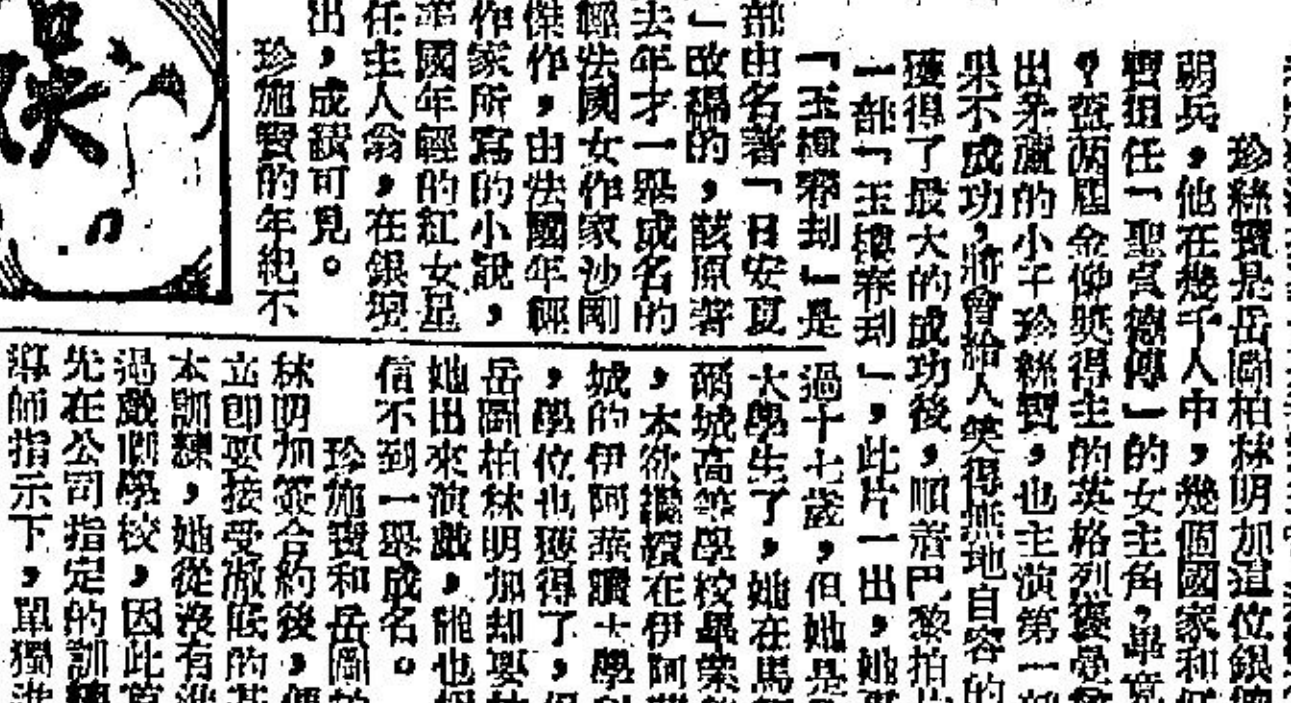 珍絲寶是岳圖柏林明加這位銀
弱兵，他在幾千人中，幾個國家和
寶担任「聖女德傳」的女主角，畢竟
，藍两屆金像獎得主的英格烈褒曼
出茅蘆的小子珍絲寶，也主演第一部
果不成功，將會給人笑得無地自容的
獲得了最大的成功後，順着巴黎拍
一部「玉樓春刦」，此片一出，她
「玉樓春刦」是
部由名著「日安夏
」改編的，該原著
去年才一舉成名的
輕法國女作家沙剛
傑作，由法國年輕
作家所寫的小說，
國年輕的紅女星
任主人翁，在銀
出，成績可見。
珍施寶的年紀不
過十七歲，但她是
大學生了，她在馬
城高等學校畢業
，本欲繼續在伊阿
城的伊阿華讀大學
，學位也獲得了，
岳圖柏林明加却要
她出來演戲，她也
信不到一舉成名。
珍施寶和岳圖
林明加簽合約後，便
立即要接受嚴的基
本訓練，她從沒有進
過戲劇學校，因此
先在公司指定的訓練
導師指示下，單獨進